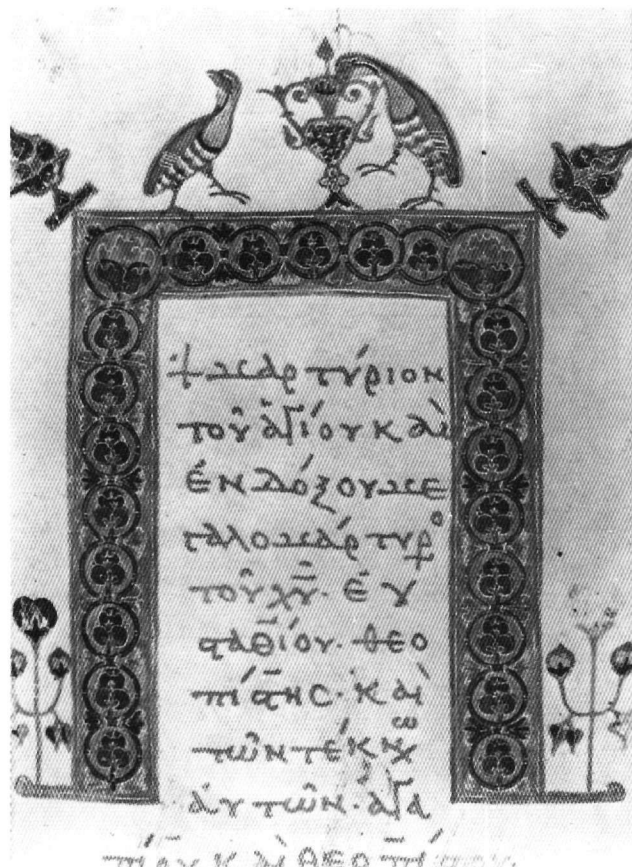 ☩ μαρτύριον
τοῦ ἁγίου καὶ
ἐνδόξου με
γαλομάρτυρο
τοῦ χ̅υ̅· εὐ
σταθίου· θεο
πίστης· καὶ
τῶν τέκνω
αὐτῶν· ἀγα
πίου καὶ θεοπίστου